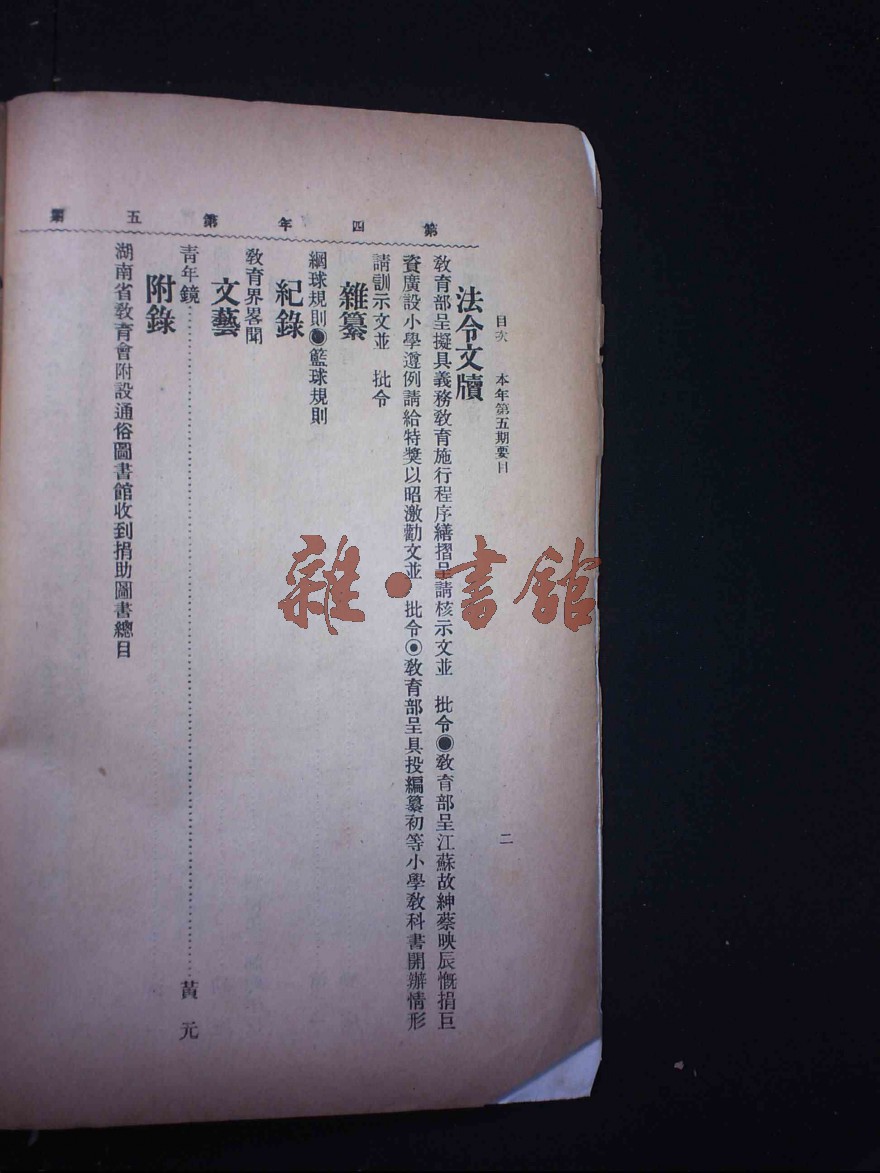 第四年第五期
目次　本年第五期要目　二
法令文牘
教育部呈擬具義務教育施行程序繕摺呈請核示文並　批令◉教育部呈江蘇故紳蔡映辰慨捐巨
資廣設小學遵例請給特獎以昭激勸文並　批令◉教育部呈具投編纂初等小學教科書開辦情形
請訓示文並　批令
雜纂
網球規則◉籃球規則
紀錄
教育界畧聞
文藝
青年鏡……黃元
附錄
湖南省教育會附設通俗圖書館收到捐助圖書總目
雜·書館